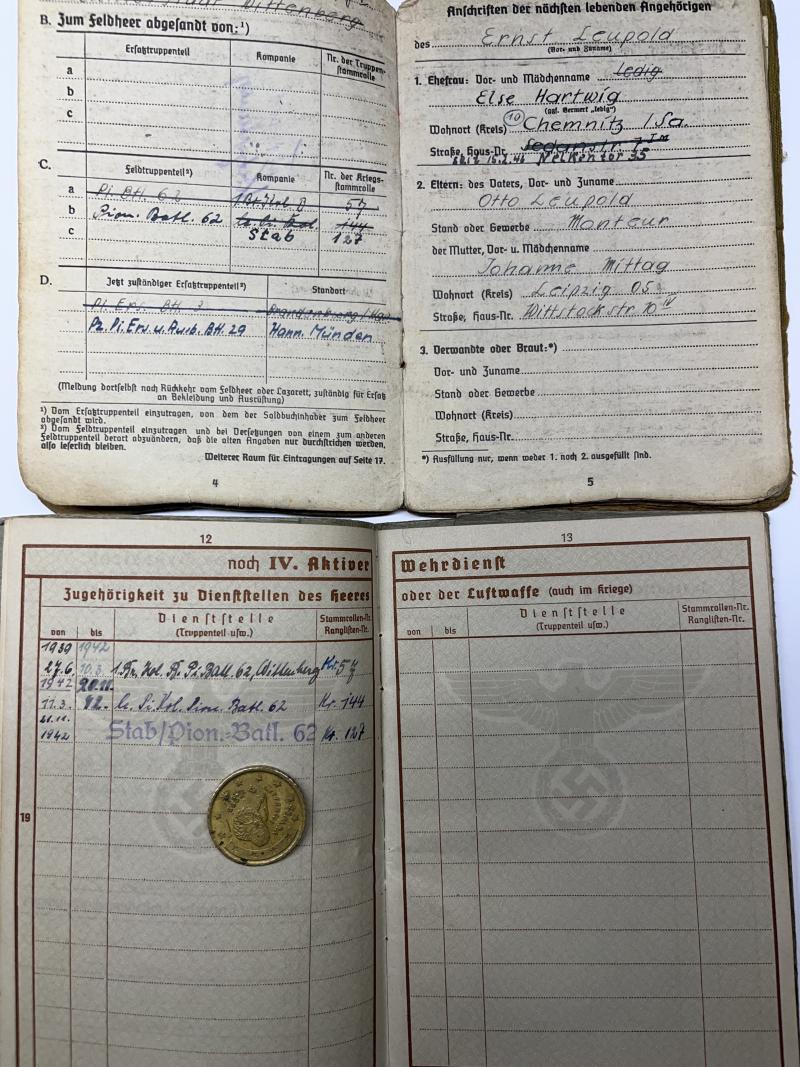 B. Zum Feldheer abgesandt von:¹)
Ersatztruppenteil Kompanie Nr. der Truppen-
stammrolle
a
b
c
C. Feldtruppenteil²) Kompanie Nr. der Kriegs-
stammrolle
a Pi. Btl. 62 57
b Pion. Batl. 62 144
c Stab 127
D. Jetzt zuständiger Ersatztruppenteil²) Standort
Pi. Ers. Btl. 3 Brandenburg/Hav.
Pz. Pi. Ers. u. Ausb. Btl. 29 Hann. Münden
(Meldung dortselbst nach Rückkehr vom Feldheer oder Lazarett, zuständig für Ersatz
an Bekleidung und Ausrüstung)
¹) Vom Ersatztruppenteil einzutragen, von dem der Soldbuchinhaber zum Feldheer
abgesandt wird.
²) Vom Feldtruppenteil einzutragen und bei Versetzungen von einem zum anderen
Feldtruppenteil derart abzuändern, daß die alten Angaben nur durchstrichen werden,
also leserlich bleiben.
Weiterer Raum für Eintragungen auf Seite 17.
4
Anschriften der nächsten lebenden Angehörigen
des Ernst Leupold
(Vor- und Zuname)
1. Ehefrau: Vor- und Mädchenname ledig
Else Hartwig
(ggf. Vermerk „ledig")
Wohnort (Kreis) 10 Chemnitz /Sa.
Straße, Haus-Nr. Sedanstr. 7
Nelkentor 35
2. Eltern: des Vaters, Vor- und Zuname
Otto Leupold
Stand oder Gewerbe Monteur
der Mutter, Vor- u. Mädchenname
Johanne Mittag
Wohnort (Kreis) Leipzig O5
Straße, Haus-Nr. Wittstockstr. 10 IV
3. Verwandte oder Braut:*)
Vor- und Zuname
Stand oder Gewerbe
Wohnort (Kreis)
Straße, Haus-Nr.
*) Ausfüllung nur, wenn weder 1. noch 2. ausgefüllt sind.
5
12
noch IV. Aktiver
Zugehörigkeit zu Dienststellen des Heeres
von bis Dienststelle
(Truppenteil usw.) Stammrollen-Nr.
Ranglisten-Nr.
1939 1942
27.6. 10.3. Pi. Batl. 62, Wittenberg Kr. 57
1942 20.11.
11.3. 42. Pion. Batl. 62 Kr. 144
21.11.
1942 Stab/Pion.-Batl. 62 Kr. 127
19
13
Wehrdienst
oder der Luftwaffe (auch im Kriege)
von bis Dienststelle
(Truppenteil usw.) Stammrollen-Nr.
Ranglisten-Nr.